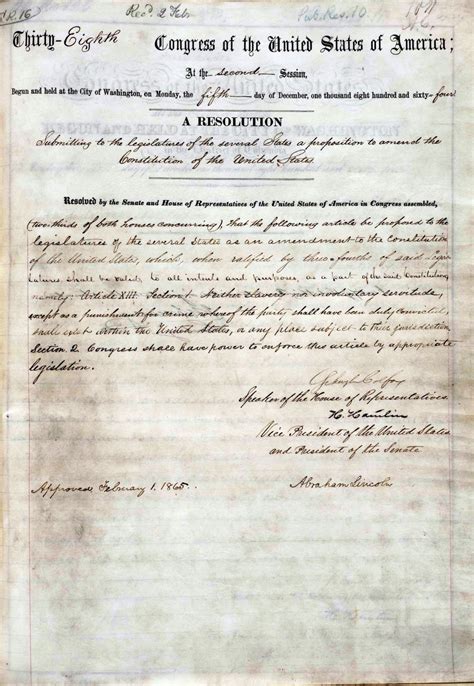 R. 16 Recd. 2 Feb Pub. Res. 10
Thirty-Eighth Congress of the United States of America;
At the second Session,
Begun and held at the City of Washington, on Monday, the fifth day of December, one thousand eight hundred and sixty-four
A RESOLUTION
Submitting to the legislatures of the several States a proposition to amend the
Constitution of the United States.
Resolved by the Senate and House of Representatives of the United States of America in Congress assembled,
(two-thirds of both houses concurring), that the following article be proposed to the
legislatures of the several States as an amendment to the Constitution
of the United States, which, when ratified by three-fourths of said legis-
latures shall be valid, to all intents and purposes, as a part of the said Constitution,
namely: Article XIII. Section 1. Neither slavery nor involuntary servitude,
except as a punishment for crime whereof the party shall have been duly convicted,
shall exist within the United States, or any place subject to their jurisdiction.
Section 2. Congress shall have power to enforce this article by appropriate
legislation.
Schuyler Colfax
Speaker of the House of Representatives.
H. Hamlin
Vice President of the United States
and President of the Senate
Approved February 1. 1865.
Abraham Lincoln